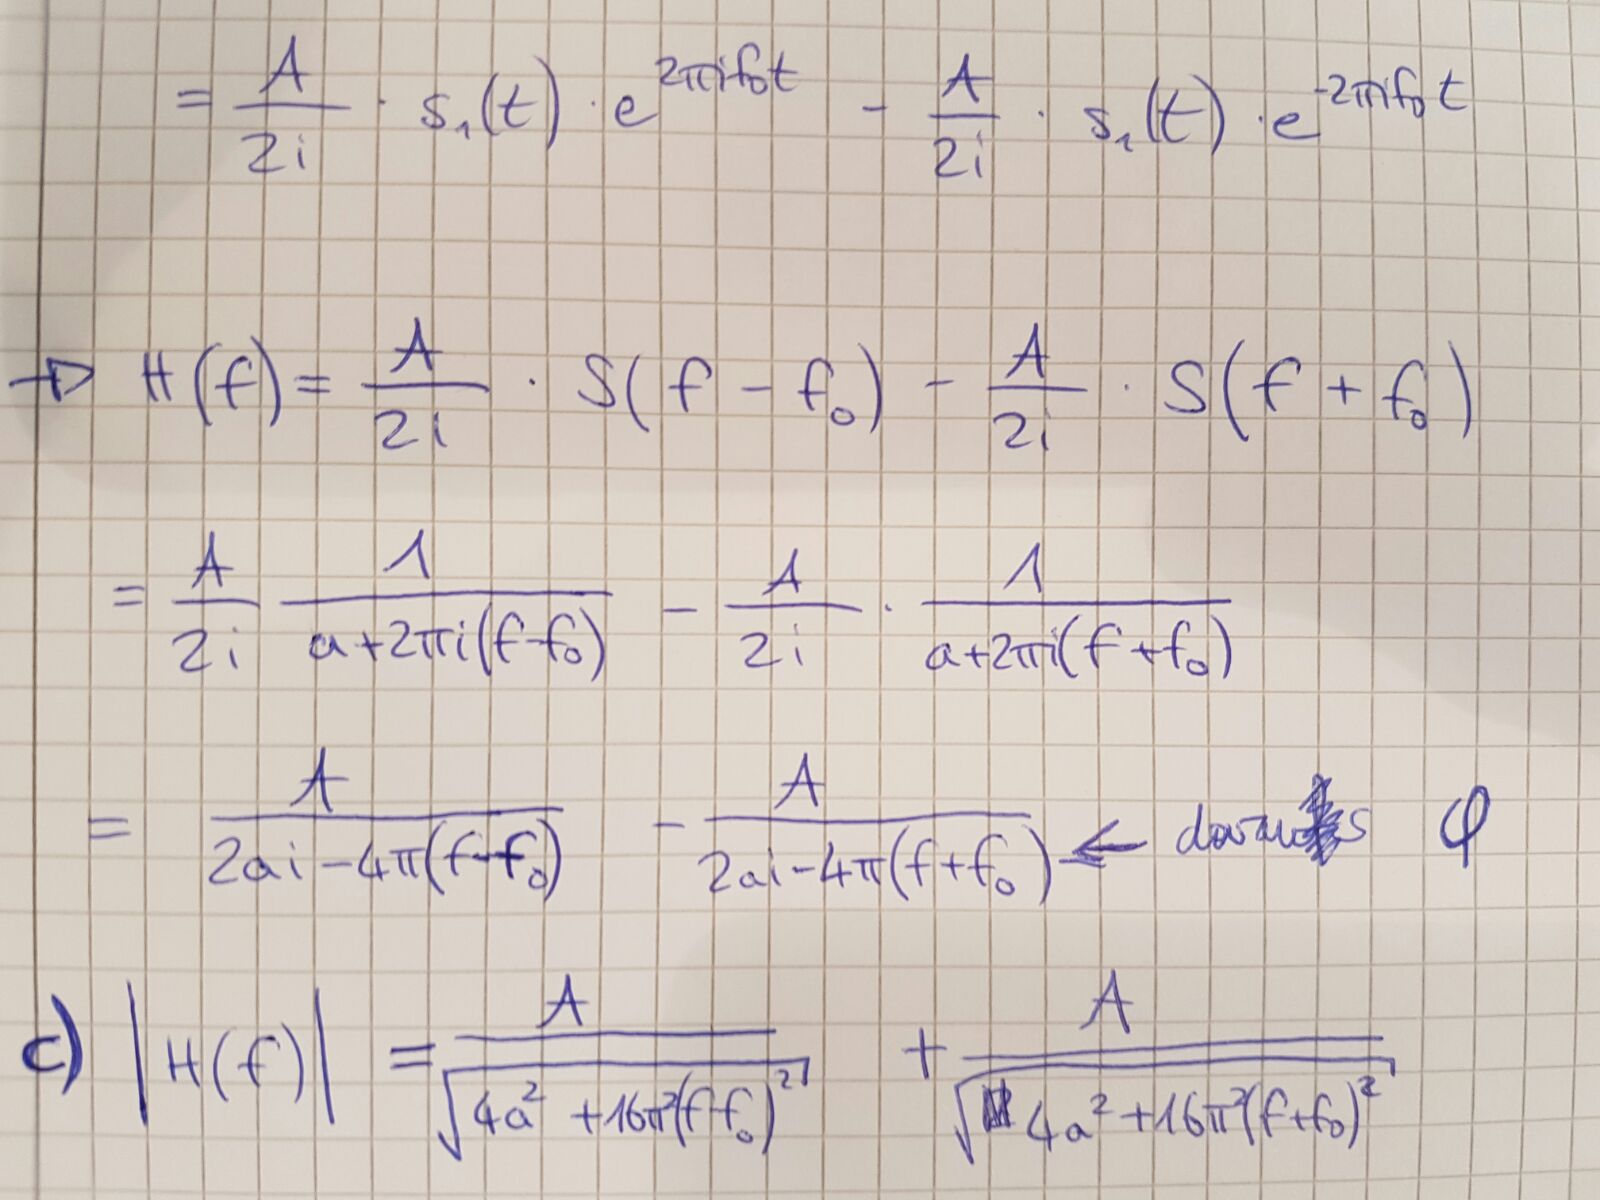 = A/2i · s₁(t) · e^(2πif₀t) - A/2i · s₁(t) · e^(-2πif₀t)
→ H(f) = A/2i · S(f - f₀) - A/2i · S(f + f₀)
= A/2i 1/(a+2πi(f-f₀)) - A/2i · 1/(a+2πi(f+f₀))
= A/(2ai-4π(f-f₀)) - A/(2ai-4π(f+f₀)) ← φ
c) |H(f)| = A/√(4a²+16π²(f-f₀)²) + A/√(4a²+16π²(f+f₀)²)